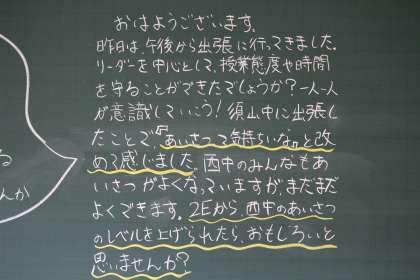 おはようございます。
昨日は、午後から出張に行ってきました。
リーダーを中心として、授業態度や時間
を守ることができたでしょうか?一人一人
が意識していこう!須山中に出張し
たことで『あいさつって気持ちいいな』と改
めて感じました。西中のみんなもあ
いさつがよくなっていますが、まだまだ
よくできます。2Eから、西中のあいさつ
のレベルを上げられたら、おもしろいと
思いませんか?
る
んか